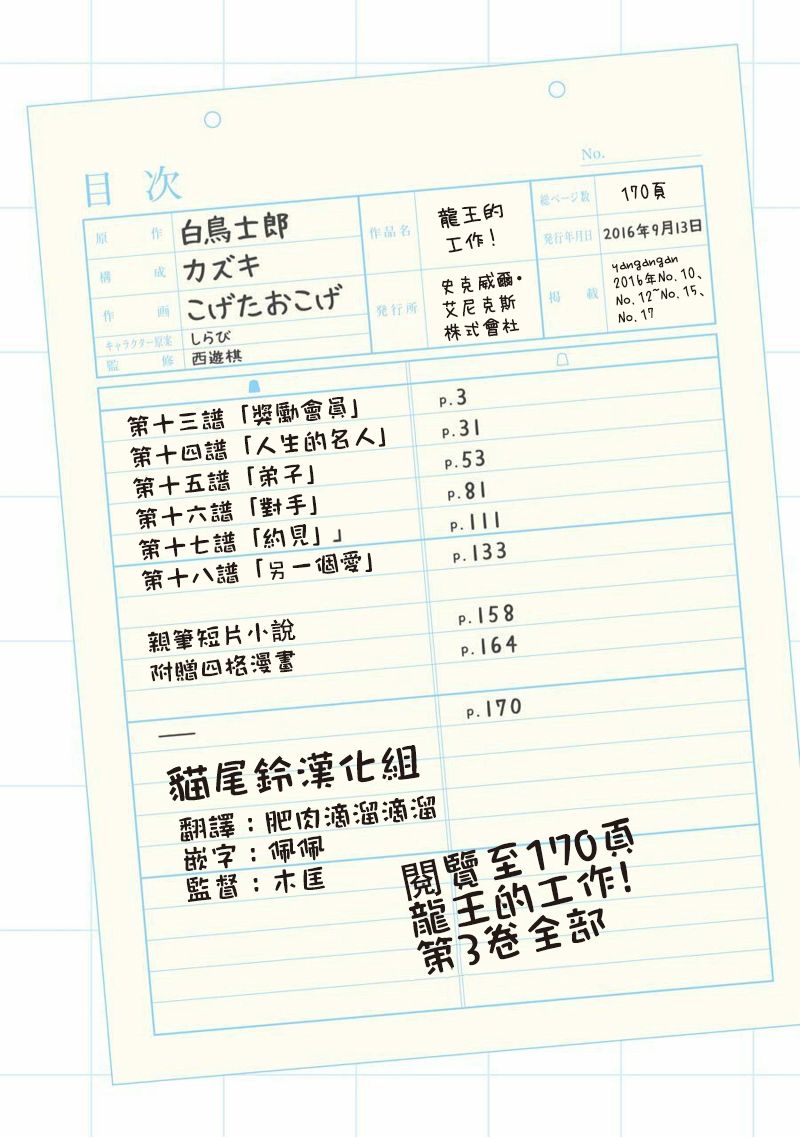 目次
No.
原作 白鳥士郎
構成 カズキ
作画 こげたおこげ
キャラクター原案 しらび
監修 西遊棋
作品名 龍王的
工作!
発行所 史克威爾·
艾尼克斯
株式會社
総ページ数 170頁
発行年月日 2016年9月13日
掲載 yangangan
2016年No.10、
No.12~No.15、
No.17
第十三譜「獎勵會員」 p.3
第十四譜「人生的名人」 p.31
第十五譜「弟子」 p.53
第十六譜「對手」 p.81
第十七譜「約見」」 p.111
第十八譜「另一個愛」 p.133
親筆短片小說 p.158
附贈四格漫畫 p.164
— p.170
貓尾鈴漢化組
翻譯：肥肉滴溜滴溜
嵌字：佩佩
監督：木匡
閱覽至170頁
龍王的工作!
第3卷全部